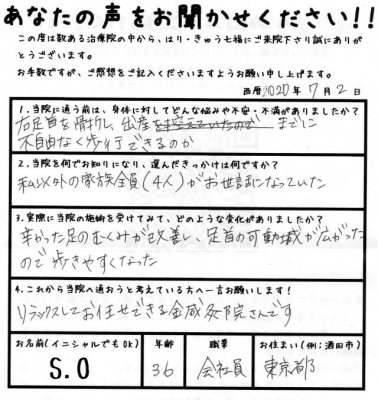 あなたの声をお聞かせください!!
この度は数ある治療院の中から、はり・きゅう七福にご来院下さり誠にありが
とうございます。
お手数ですが、ご感想をご記入くださいますようお願い申し上げます。
西暦2020年 7月 2日
1.当院に通う前は、身体に対してどんな悩みや不安・不満がありましたか?
右足首を骨折し、出産を控えていたので までに
不自由なく歩行できるのか
2.当院を何でお知りになり、選んだきっかけは何ですか?
私以外の家族全員(4人)がお世話になっていた
3.実際に当院の施術を受けてみて、どのような変化がありましたか?
辛かった足のむくみが改善し、足首の可動域が広がった
ので歩きやすくなった
4.これから当院へ通おうと考えている方へ一言お願いします!
リラックスしてお任せできる鍼灸院さんです
お名前(イニシャルでもOK) 年齢 職業 お住まい(例:酒田市)
S.O 36 会社員 東京都